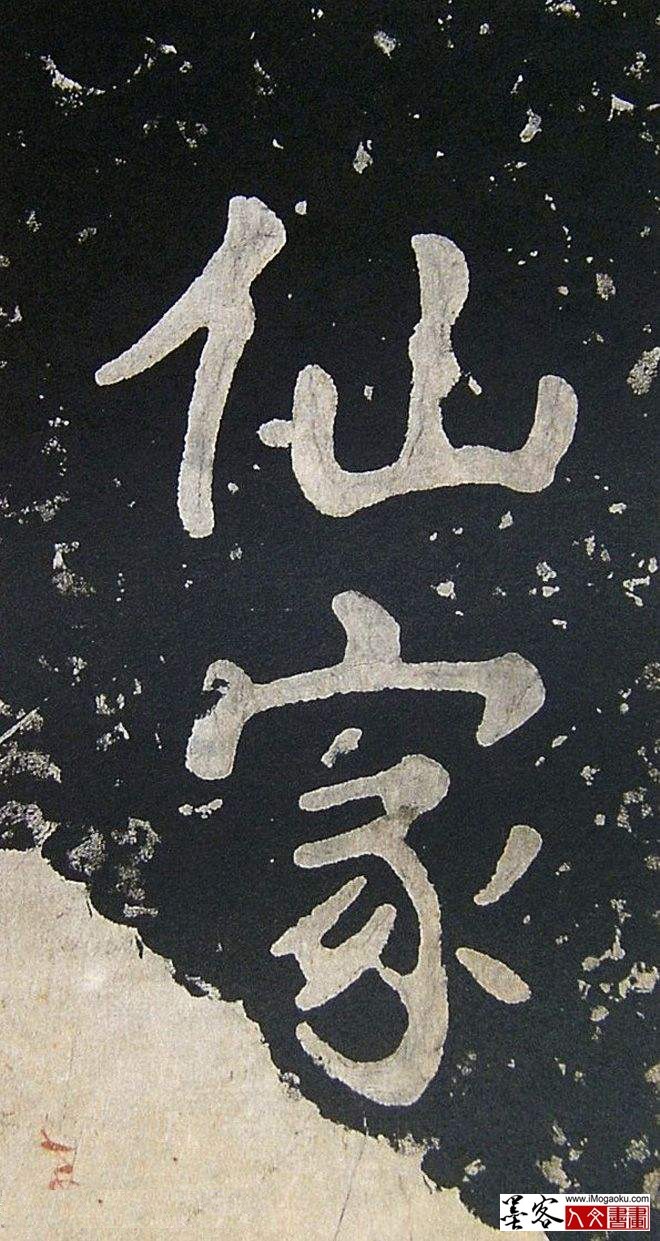 仙
家
墨客
www.iMogaoku.com
人文書畫